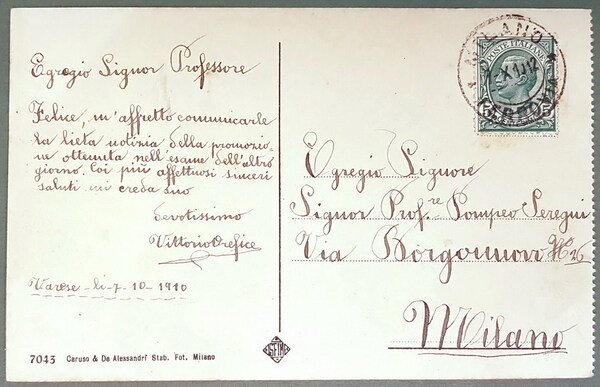 Egregio Signor Professore
Felice, m'affretto comunicarle
la lieta notizia della promozio-
ne ottenuta nell'esame dell'altro
giorno. Coi più affettuosi sinceri
saluti mi creda suo
devotissimo
Vittorio Orefice
Varese - li - 7 - 10 - 1910
7043 Caruso & De Alessandri Stab. Fot. Milano
MILANO
POSTE ITALIANE
Egregio Signore
Signor Prof.re Pompeo Peregui
Via Borgonuovo N. 26
Milano